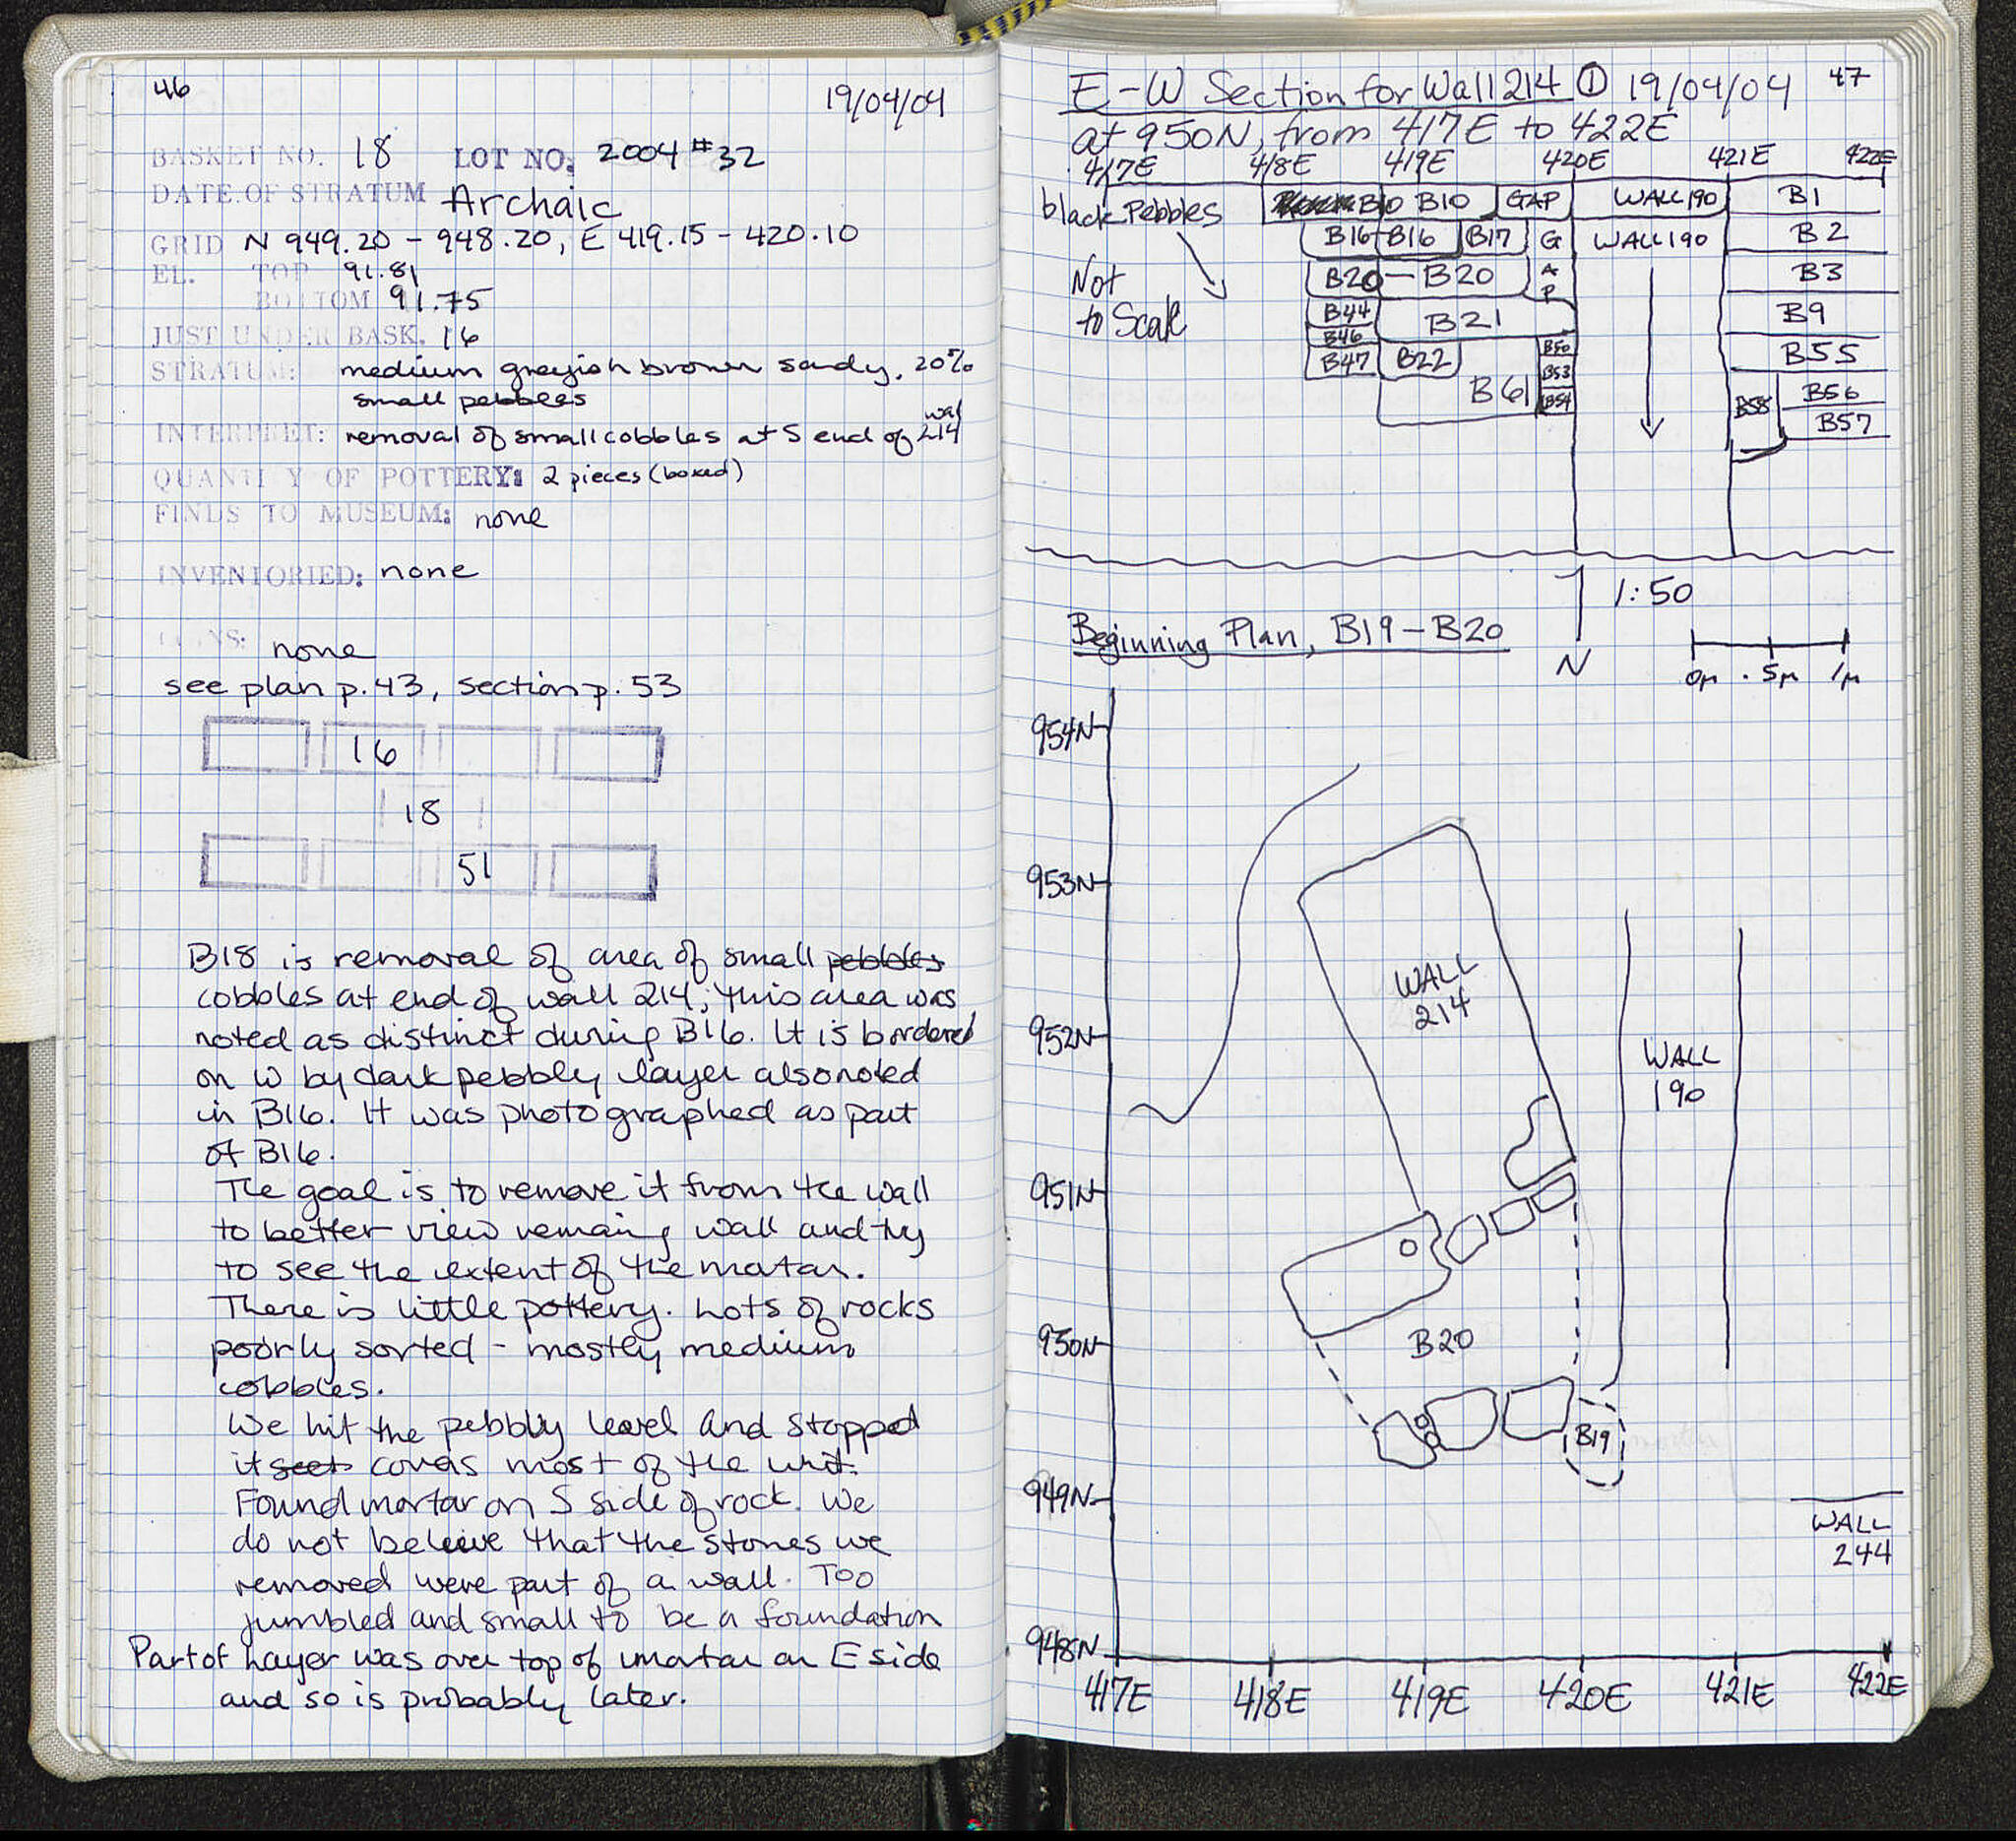 46
19/04/04
BASKET NO. 18 LOT NO: 2004 #32
DATE OF STRATUM Archaic
GRID N 949.20 - 948.20, E 419.15 - 420.10
EL. TOP 91.81
BOTTOM 91.75
JUST UNDER BASK. 16
STRATUM: medium greyish brown sandy, 20%
small pebbles
INTERPRET: removal of small cobbles at S end of wall 214
QUANTITY OF POTTERY: 2 pieces (boxed)
FINDS TO MUSEUM: none
INVENTORIED: none
COINS: none
see plan p. 43, section p. 53
16
18
51
B18 is removal of area of small pebbles
cobbles at end of wall 214; this area was
noted as distinct during B16. It is bordered
on W by dark pebbly layer also noted
in B16. It was photographed as part
of B16.
The goal is to remove it from the wall
to better view remaing wall and try
to see the extent of the mortar.
There is little pottery. Lots of rocks
poorly sorted - mostly medium
cobbles.
We hit the pebbly level and stopped
it covers most of the unit.
Found mortar on S side of rock. We
do not beleive that the stones we
removed were part of a wall. Too
jumbled and small to be a foundation
Part of Layer was over top of mortar on E side
and so is probably later.
E-W Section for Wall 214 ① 19/04/04 47
at 950N, from 417E to 422E
417E 418E 419E 420E 421E 422E
black Pebbles B10 B10 GAP WALL 190 B1
B16 B16 B17 G WALL 190 B2
Not B20 - B20 A B3
P
to Scale B44 B21 B9
B46
B47 B22 B50 B55
B61 B53 B58 B56
B54 B57
1:50
Beginning Plan, B19-B20
N
0m .5m 1m
954N
953N
WALL
214
952N
WALL
190
951N
950N
B20
B19
949N
WALL
244
948N
417E 418E 419E 420E 421E 422E